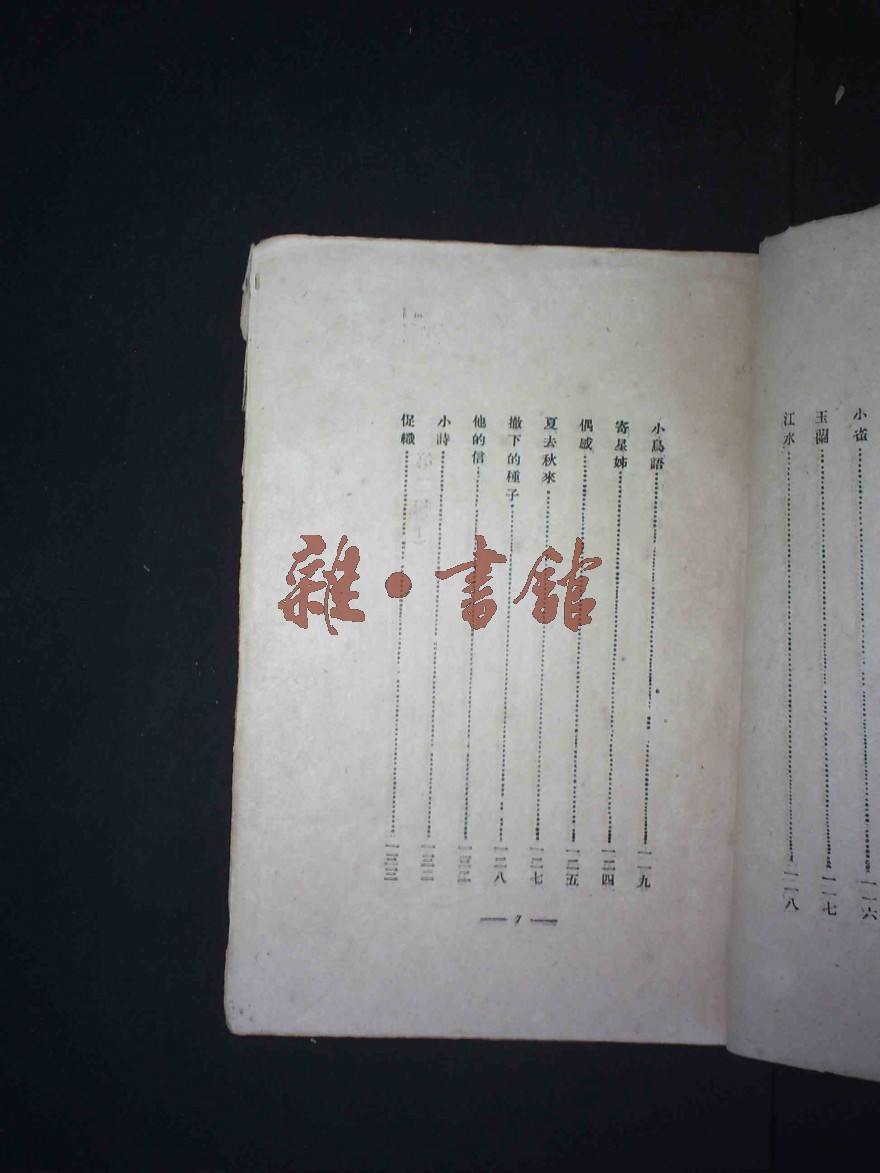 小雀……一一六
玉蘭……一一七
江水……一一八
小鳥語……一一九
寄星姊……一二四
偶感……一二五
夏去秋來……一二七
撤下的種子……一二八
他的信……
小詩……一三二
促織……一三三
7
雜·書館